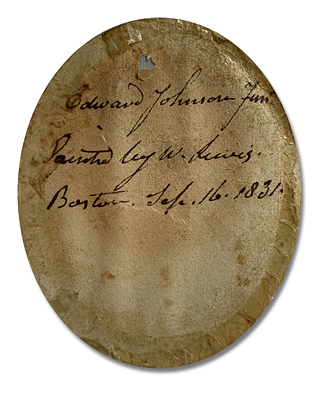 Edward Johnson Jun
Painted by W. Lewis.
Boston. Sep. 16. 1831.